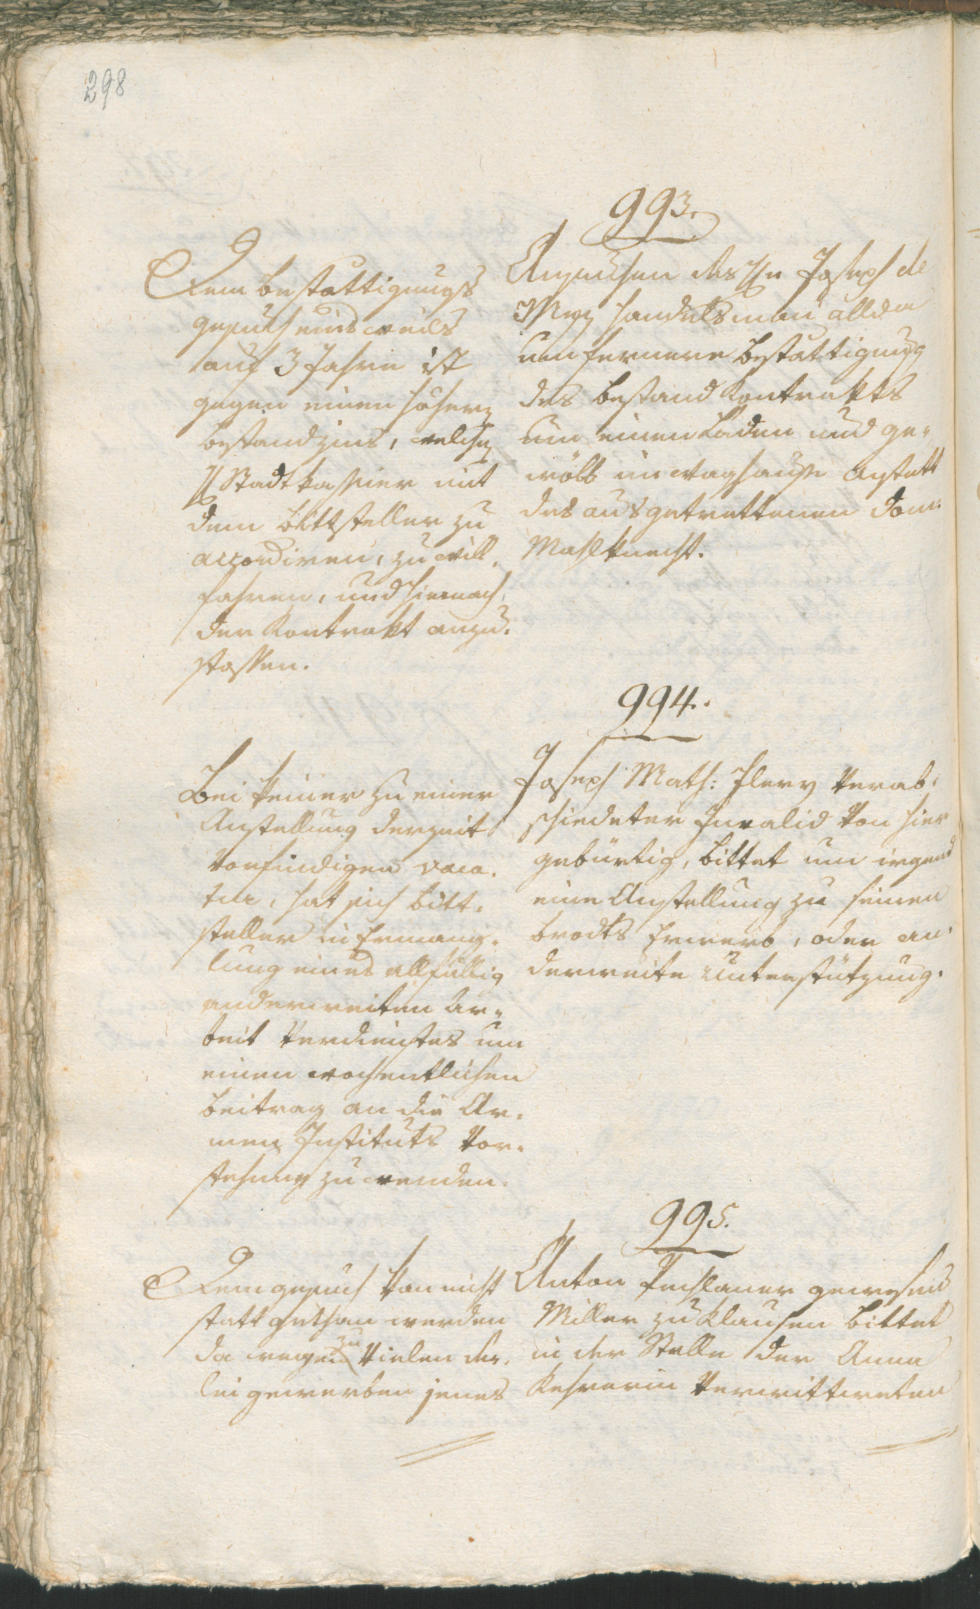 298
993.
Dem Bestättigungs
gesuch einsweils
auf 3 Jahre ist
gegen einen höhern
Bestandzins, welchen
H Stadtkassier mit
dem Bittsteller zu
accordiren, zu will„
fahren, und hiernach
der Kontrakt anzu„
stossen.
Ansuchen des Hn Joseph de
Mez Handelsman allda
um fernere Bestättigung
des Bestand Kontrakts
um einen Laden und ge„
wölb im Waaghause anstatt
des ausgetrettenen Dom:
Mahlknecht.
994.
Bei keiner zu einer
Anstellung derzeit
vorfindigen Vaca„
tur, hat sich Bitt„
steller in Ermang„
lung eines allfällig
anderweiten Ar„
beit Verdienstes um
einen wochentlichen
Beitrag an die Ar„
men Instituts Vor„
stehung zu wenden.
Joseph Math: verab„
schiedeter Invalid von hier
gebürtig, bittet um irgend
eine Anstellung zu seinen
Brodts Erwerb, oder an„
derweite Unterstützung.
995.
Dem gesuch kan nicht
statt gethan werden
da wegen zu vielen der„
lei gewerben jenes
Anton gewesend
Miller zu Klausen bittet
in der Stelle der Anna
Kehrerin verwittweten